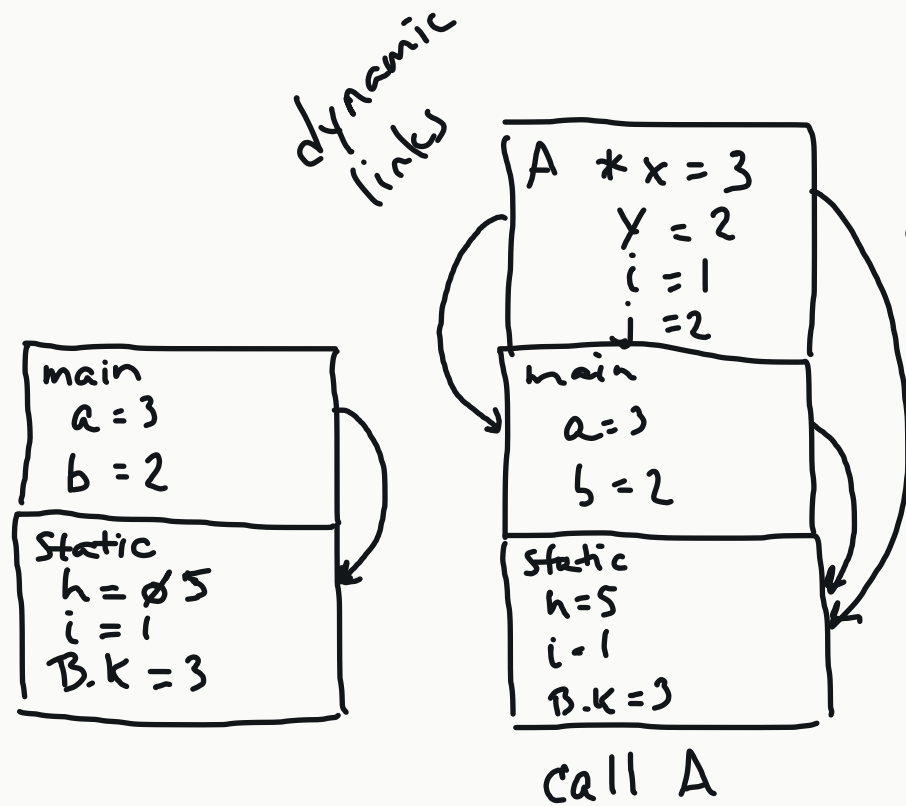 dynamic
links
main
a = 3
b = 2
static
h = 0 5
i = 1
B.K = 3
A * x = 3
y = 2
i = 1
j = 2
main
a = 3
b = 2
static
h = 5
i - 1
B.K = 3
call A